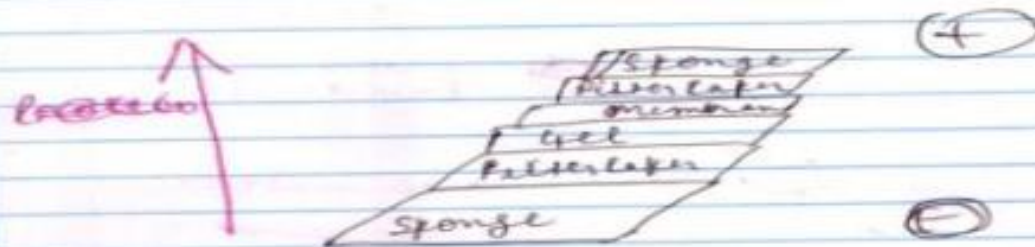 (+)
Sponge
Filter Paper
membran
Gel
Filter Paper
Sponge
(-)